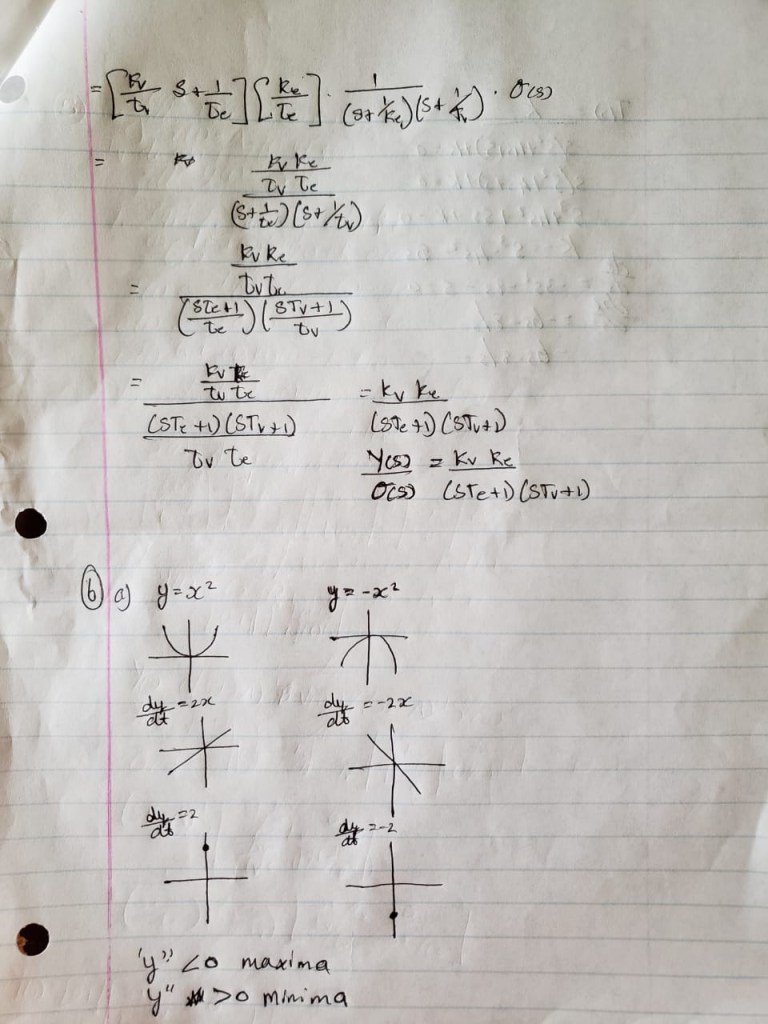 = [kv/τv s + 1/τe] [ke/τe] · 1/((s+1/ke)(s+1/τv)) · σ(s)
= kv ke/τv τe / (s+1/τe)(s+1/τv)
= kv ke/τv τe / ((sτe+1)/τe)((sτv+1)/τv)
= kv ke/τv τe / ((sτe+1)(sτv+1)/τv τe) = kv ke/(sτe+1)(sτv+1)
Y(s)/σ(s) = kv ke/(sτe+1)(sτv+1)
6 a) y=x² y=-x²
dy/dt =2x dy/dt =-2x
dy/dt =2 dy/dt =-2
'y'' <0 maxima
y'' >0 minima